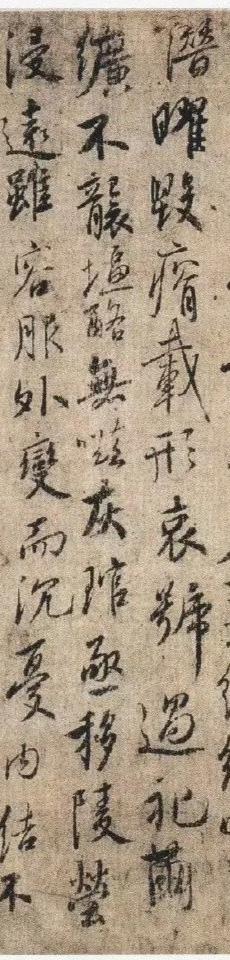 潛曜毀瘠載形哀號過祀繭
纊不襲塩酪無嗞灰琯亟移陵塋
浸遠雖容服外變而沉憂內結不